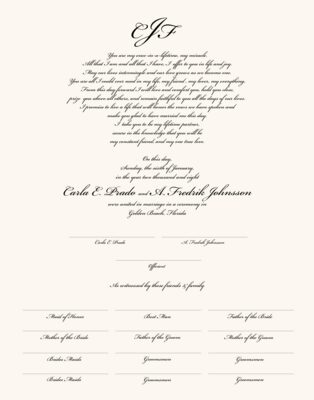 CJF
You are my once-in-a-lifetime, my miracle.
All that I am and all that I have, I offer to you in life and joy.
May our lives intermingle and our love grow as we become one.
You are all I could ever need in my life, my friend, my lover, my everything.
From this day forward I will love and comfort you, hold you close,
prize you above all others, and remain faithful to you all the days of our lives.
I promise to live a life that will honor the vows we have spoken and
make you glad to have married me this day.
I take you to be my lifetime partner,
secure in the knowledge that you will be
my constant friend, and my one true love.
On this day,
Sunday, the sixth of January,
in the year two thousand and eight
Carla E. Prado and A. Fredrik Johnsson
were united in marriage in a ceremony in
Golden Beach, Florida
Carla E. Prado A. Fredrik Johnsson
Officiant
As witnessed by these friends & family
Maid of Honor Best Man Father of the Bride
Mother of the Bride Father of the Groom Mother of the Groom
Brides Maids Groomsmen Groomsmen
Brides Maids Groomsmen Groomsmen